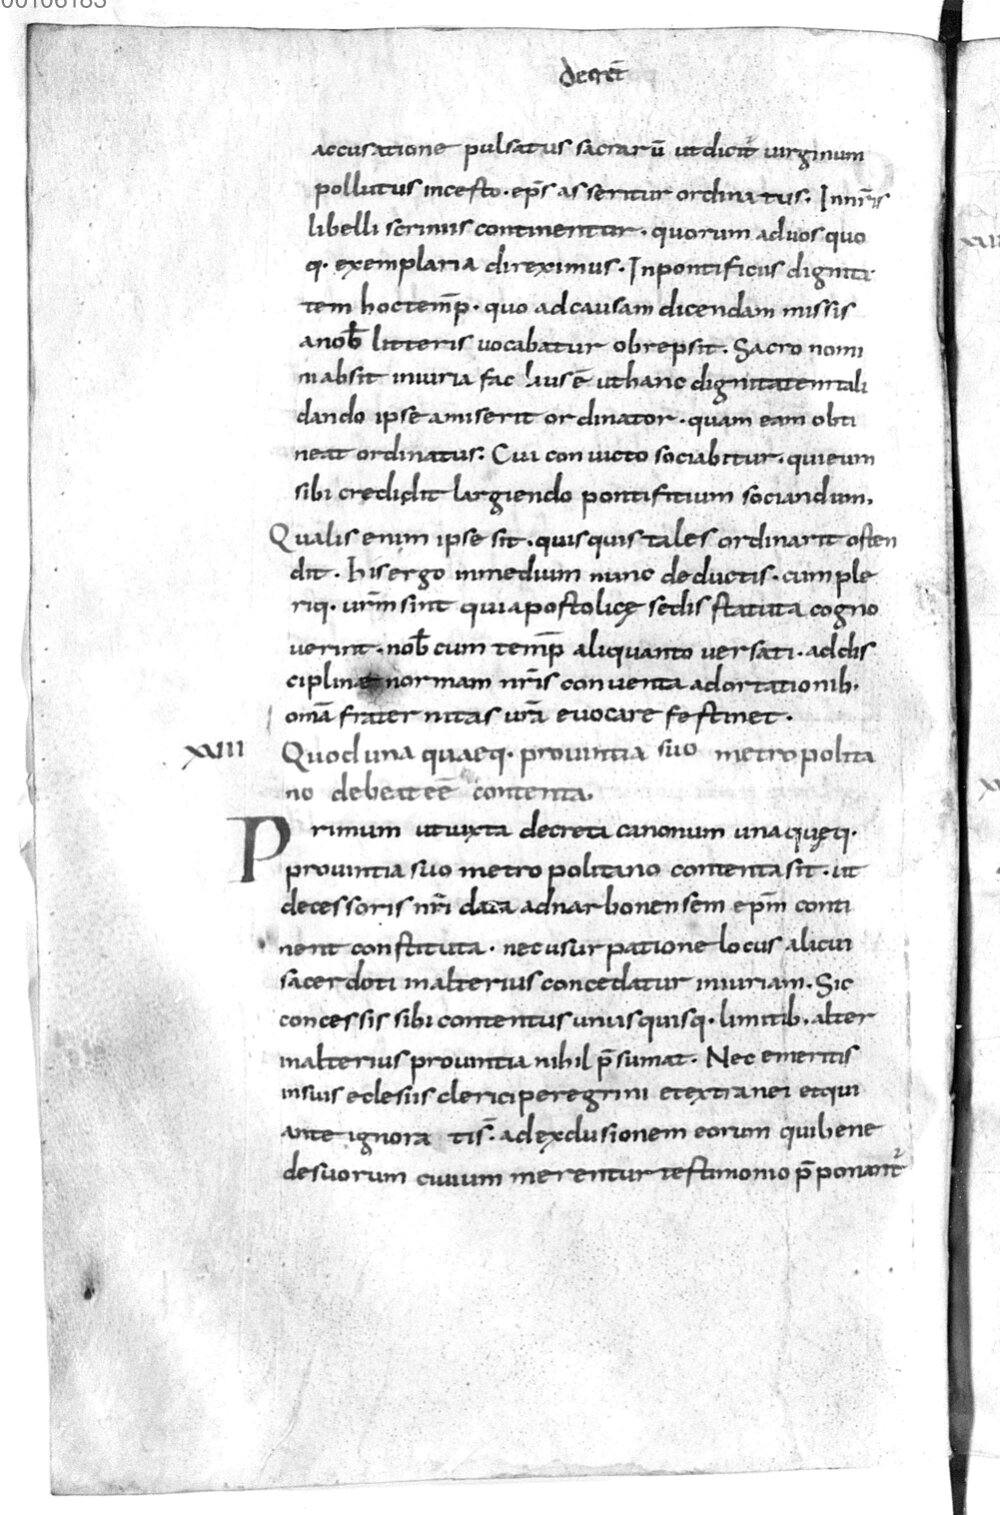 00106183
decret̄
accusatione pulsatus sacrarū ut dicit virginum
pollutus incesto · ep̄s asseritur ordinatus · In nr̄is
libelli scriniis continentur · quorum ad vos quo
q· exemplaria direximus · In pontificiis dignita
tem hoc temp̄ · quo ad causam dicendam missis
a nob̄ litteris vocabatur obrepsit · Sacro nomi
ni absit iniuria facilius ē ut hanc dignitatem tali
dando ipse amiserit ordinator · quam eam obti
neat ordinatus · Cui convicto sociabitur · qui eum
sibi credidit largiendo pontifitium sociandum ·
Qualis enim ipse sit · quisquis tales ordinarit osten
dit · his ergo in medium nunc deductis · cum ple
riq· urm̄ sint qui apostolicę sedis statuta cogno
verint · nob̄ cum temp̄ aliquanto versati · ad dis
ciplinae normam nr̄is conventa adortationib·
omā fraternitas ur̄a evocare festinet ·
XXIII Quod una quaeq· provintia suo metropolita
no debeat eē contenta ·
Primum ut iuxta decreta canonum una quęq·
provintia suo metropolitano contenta sit · ut
decessoris nr̄i data ad narbonensem ep̄m conti
nent constituta · nec usurpatione locus alicui
sacerdoti in alterius concedatur iniuriam · Sic
concessis sibi contentus unusquisq· limitib· alter
in alterius provintia nihil p̄sumat · Nec emeritis
in suis eclesiis clerici peregrini et extranei et qui
ante ignorati s̄ · ad exclusionem eorum qui bene
de suorum civium merentur testimonio p̄ponant̄